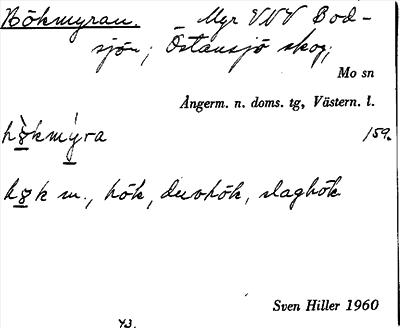 Hökmyran. Myr VNV Bod-
sjön; Östansjö skog;
Mo sn
Ångerm. n. doms. tg, Västern. l.
159.
hø̀kmýra
høk m., hök, duvhök, slaghök
Sven Hiller 1960
43.